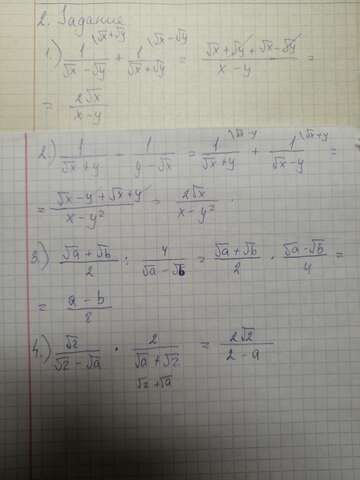 2. Задание
1.) 1/(√x - √y) \√x+√y + 1/(√x + √y) \√x-√y = (√x + √y + √x - √y)/(x - y) =
= 2√x/(x - y)
2.) 1/(√x + y) - 1/(y - √x) = 1/(√x + y) \√x-y + 1/(√x - y) \√x+y =
= (√x - y + √x + y)/(x - y²) = 2√x/(x - y²).
3.) (√a + √b)/2 : 4/(√a - √b) = (√a + √b)/2 · (√a - √b)/4 =
= (a - b)/8
4.) √2/(√2 - √a) · 2/(√a + √2) = 2√2/(2 - a)
√2 + √a